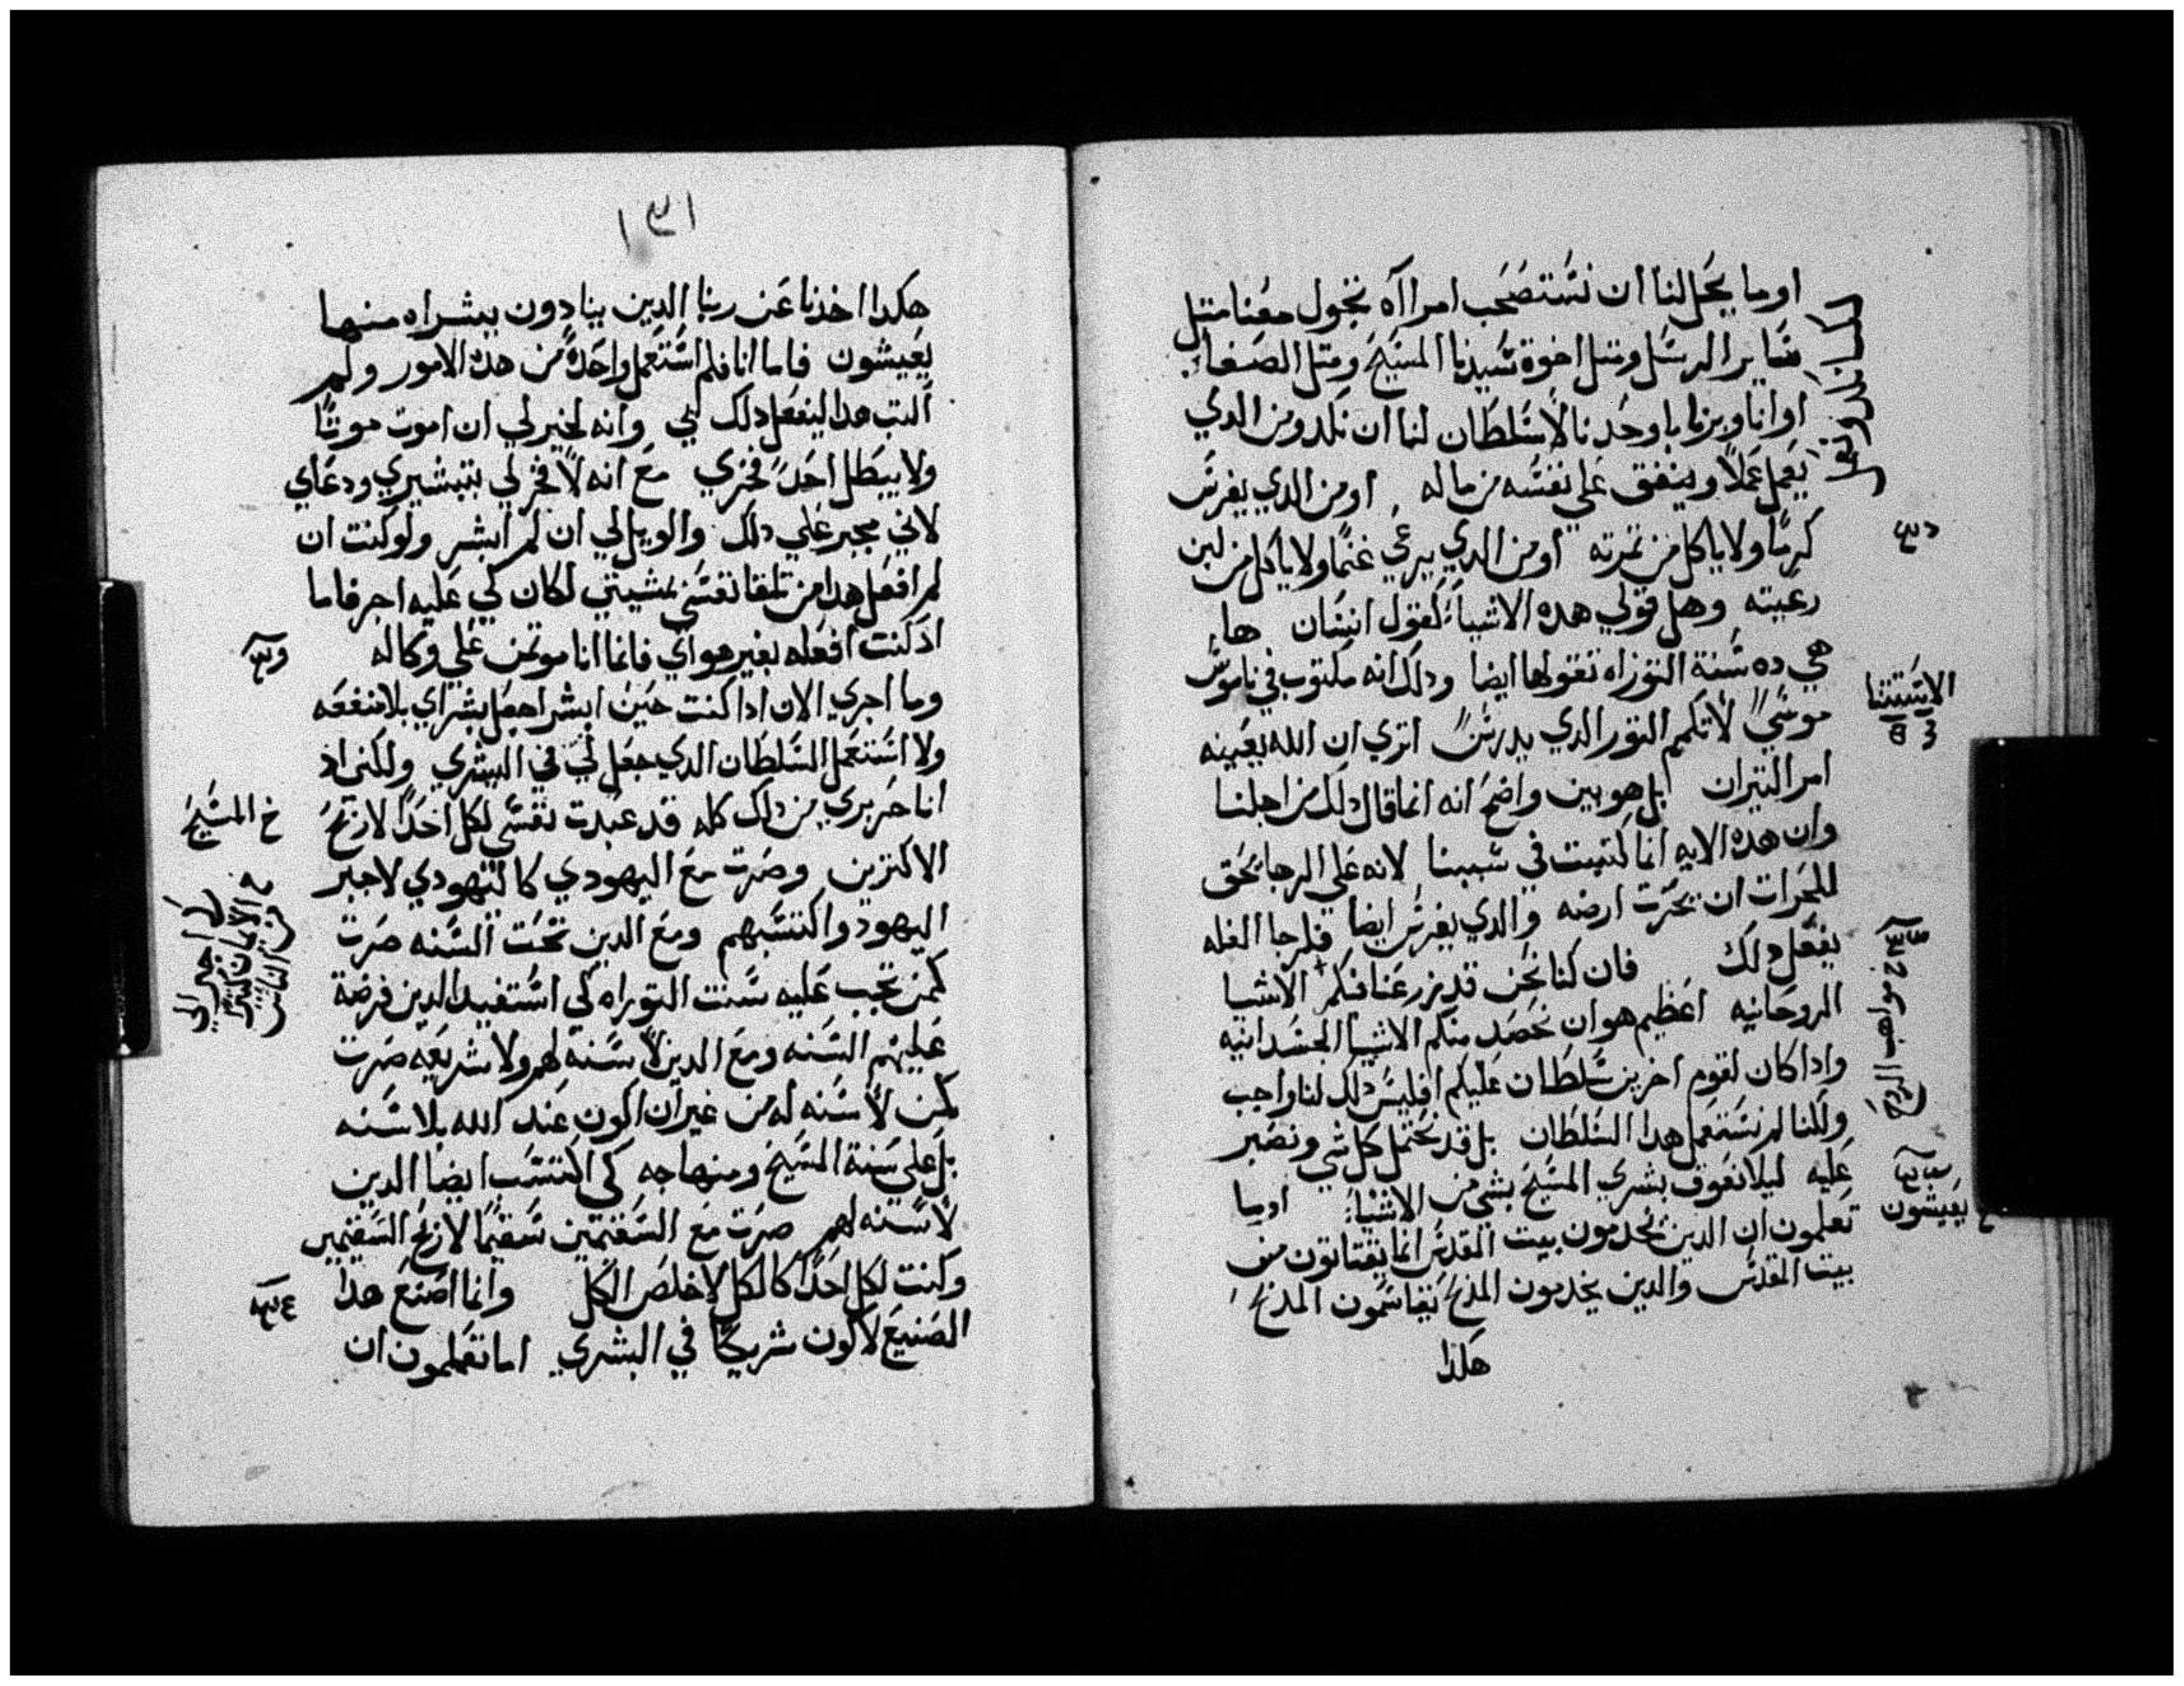 اوما يحل لنا ان نستصحب امرااه تجول معنا متل
ساير الرسل ومتل اخوة سيدنا المسيح ومتل الصفا
او انا وبرنابا وحدنا لا سلطان لنا ان نكد ومن الدي
يعمل عملا وينفق علي نفسه من ماله او من الدي يغرس
كرمًا ولا ياكل من تمرته او من الدي يرعي غنمًا ولا ياكل من لبن
رعيته وهل قولي هده الاشيا كقول انسان ها
هي ده سنة التوراه تقولها ايضا ودلك انه مكتوب في ناموس
موسي لا تكمم التور الدي يدرس اتري ان الله يعينه
امر التيران بل هو بين واضح انه انما قال دلك من اجلنا
وان هده الايه انما كتبت في سببنا لانه علي الرجا يحق
للحرات ان يحرت ارضه والدي يغرس ايضا فلرجا الغله
يفعل دلك فان كنا نحن قد زرعنا فيكم الاشيا
الروحانيه اعظيم هو ان نحصد منكم الاشيا الجسدانيه
وادا كان لقوم اخرين سلطان عليكم افليس دلك لنا واجب
ولكنا لم نستعمل هدا السلطان بل قد نحتمل كل شي ونصبر
عليه ليلا نعوق بشري المسيح بشي من الاشيا اوما
تعلمون ان الدين يخدمون بيت المقدس انما يقتاتون من
بيت المقدس والدين يخدمون المدبح يقاسمون المدبح
هكدا
الاستتنا
يعيشون
١٣١
هكدا اخدنا عن ربنا الدين ينادون ببشراه منها
يعيشون فاما انا فلم استعمل واحدة من هده الامور ولم
اكتب هدا ليفعل دلك لي وانه لخير لي ان اموت موتًا
ولا يبطل احد فخري مع انه لا فخر لي بتبشيري ودعاي
لاني مجبر علي دلك والويل لي ان لم ابشر ولو كنت ان
لم افعل هدا من تلقا نفسي بمشيتي لكان لي عليه اجر فاما
اد كنت افعله بغير هواي فانما انا موتمن علي وكاله
وما اجري الان ادا كنت حين ابشر اجعل بشراي بلا منفعه
ولا استعمل السلطان الدي جعل لي في البشري ولكني اد
انا حر بري من دلك كله قد عبدت نفسي لكل احد لاربح
الاكترين وصرت مع اليهودي كاليهودي لاجبر
اليهود واكتسبهم ومع الدين تحت السنه صرت
كمن تجب عليه سنت التوراه كي استفيد الدين فرضة
عليهم السنه ومع الدين لا سنه لهم ولا شريعه صرت
كمن لا سنه له من غير ان اكون عند الله بلا سنه
بل علي سنة المسيح ومنهاجه كي اكتسب ايضا الدين
لا سنه لهم صرت مع السقيمين سقيمًا لاربح السقيمين
وكنت لكل احدًا كالكل لاخلص الكل وانما اصنع هدا
الصنيع لاكون شريكًا في البشري اما تعلمون ان
خ المسيح